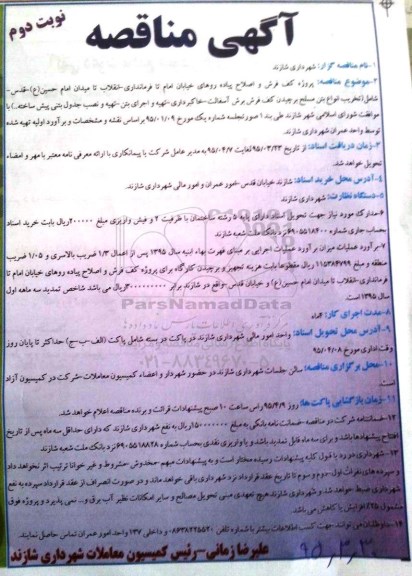 نوبت دوم
آگهی مناقصه
۱-نام مناقصه گزار: شهرداری شازند
۲-موضوع مناقصه: پروژه کف فرش و اصلاح پیاده روهای خیابان امام تا فرمانداری-انقلاب تا میدان امام حسین(ع)-قدس-
شامل(تخریب انواع بتن مسلح برچیدن کف فرش برش آسفالت-خاکبرداری-تهیه و اجرای بتن-تهیه و نصب جدول بتنی پیش ساخته..) با
موافقت شورای اسلامی شهر شازند طی بند ۱ صورتجلسه شماره یک مورخ ۹۵/۰۱/۰۹ براساس نقشه و مشخصات و برآورد اولیه تهیه شده
توسط واحد عمران شهرداری شازند.
۳-زمان دریافت اسناد: از تاریخ ۹۵/۰۳/۲۳ لغایت ۹۵/۰۴/۷ به مدیر عامل شرکت یا پیمانکاری با ارائه معرفی نامه معتبر با مهر و امضاء
تحویل خواهد شد.
۴-آدرس محل خرید اسناد: شازند خیابان قدس-امور عمران و امور مالی شهرداری شازند.
۵-دستگاه نظارت: شهرداری شازند
۶-مدارک مورد نیاز جهت تحویل اسناد دارای پایه ۵ رشته ساختمان با ظرفیت ۲ و فیش واریزی مبلغ ۲۰۰۰۰۰ ریال بابت خرید اسناد
بحساب جاری شماره ۶۹۰۵۵۱۸۴۰۰ نزد بانک ملت شعبه شازند
۷-برآورد عملیات میزان برآورد عملیات اجرایی بر مبنای فهرست بهاء ابنیه سال ۱۳۹۵ پس از اعمال ۱/۳ ضریب بالاسری و ۱/۰۵ ضریب
منطقه و مبلغ ۱۱۵۳۸۴۷۹۹ ریال مقطوعا بابت هزینه تجهیز و برچیدن کارگاه برای پروژه کف فرش و اصلاح پیاده روهای خیابان امام تا
فرمانداری-انقلاب تا میدان امام حسین(ع) و خیابان قدس-واقع در شازند برابر ریال می باشد شاخص تمدید سه ماهه اول
سال ۱۳۹۵ است.
۸-مدت اجرای کار: ماه
۹-آدرس محل تحویل اسناد: واحد امور مالی شهرداری شازند در پاکت در بسته شامل پاکت (الف-ب-ج) حداکثر تا پایان روز
وقت اداری مورخ ۹۵/۰۴/۰۸
۱۰-محل برگزاری مناقصه: سالن جلسات شهرداری شازند در حضور شهردار و اعضاء کمیسیون معاملات-شرکت در کمیسیون آزاد
است.
۱۱-زمان بازگشایی پاکت ها: روز ۹۵/۴/۹ راس ساعت ۱۰ صبح پیشنهادات قرائت و برنده مناقصه اعلام خواهد شد.
۱۲-ضمانتنامه شرکت در مناقصه-ضمانت نامه بانکی به مبلغ ریال به نفع شهرداری شازند که دارای حداقل سه ماه پس از تاریخ
افتتاح پیشنهادها باشد و برای سه ماه قابل تمدید باشد و یا واریزی نقدی بحساب شماره ۶۹۰۵۵۱۸۸۲۸ نزد بانک ملت شعبه شازند
۱۳-شهرداری در رد یا قبول کلیه پیشنهادات رسیده مختار است و به پیشنهادات مبهم-مخدوش-مشروط و غیر خوانا ترتیب اثر نخواهد داد
و سپرده های نفرات اول-دوم و سوم تا تاریخ عقد قرارداد نزد شهرداری باقی خواهد ماند و در صورت انصراف از عقد قرارداد سپرده به نفع
شهرداری ضبط خواهد شد و شهرداری شازند هیچ تعهدی مبنی تحویل مصالح و سایر امکانات نظیر آب برق و.. نمی پذیرد و پروژه فوق
مشمول ۲۵٪ افزایش یا کاهش می باشد.
۱۴-داوطلبان می توانند جهت کسب اطلاعات بیشتر با شماره تلفن ۰۸۶۳۸۲۲۵۵۲۰ و داخلی ۱۳۷ واحد امور عمران تماس حاصل نمایند.
علیرضا زمانی-رئیس کمیسیون معاملات شهرداری شازند
۹۵,۳,۳۰
ParsNamadData
۰۲۱-۸۸۳۴۹۶۷۰-۵